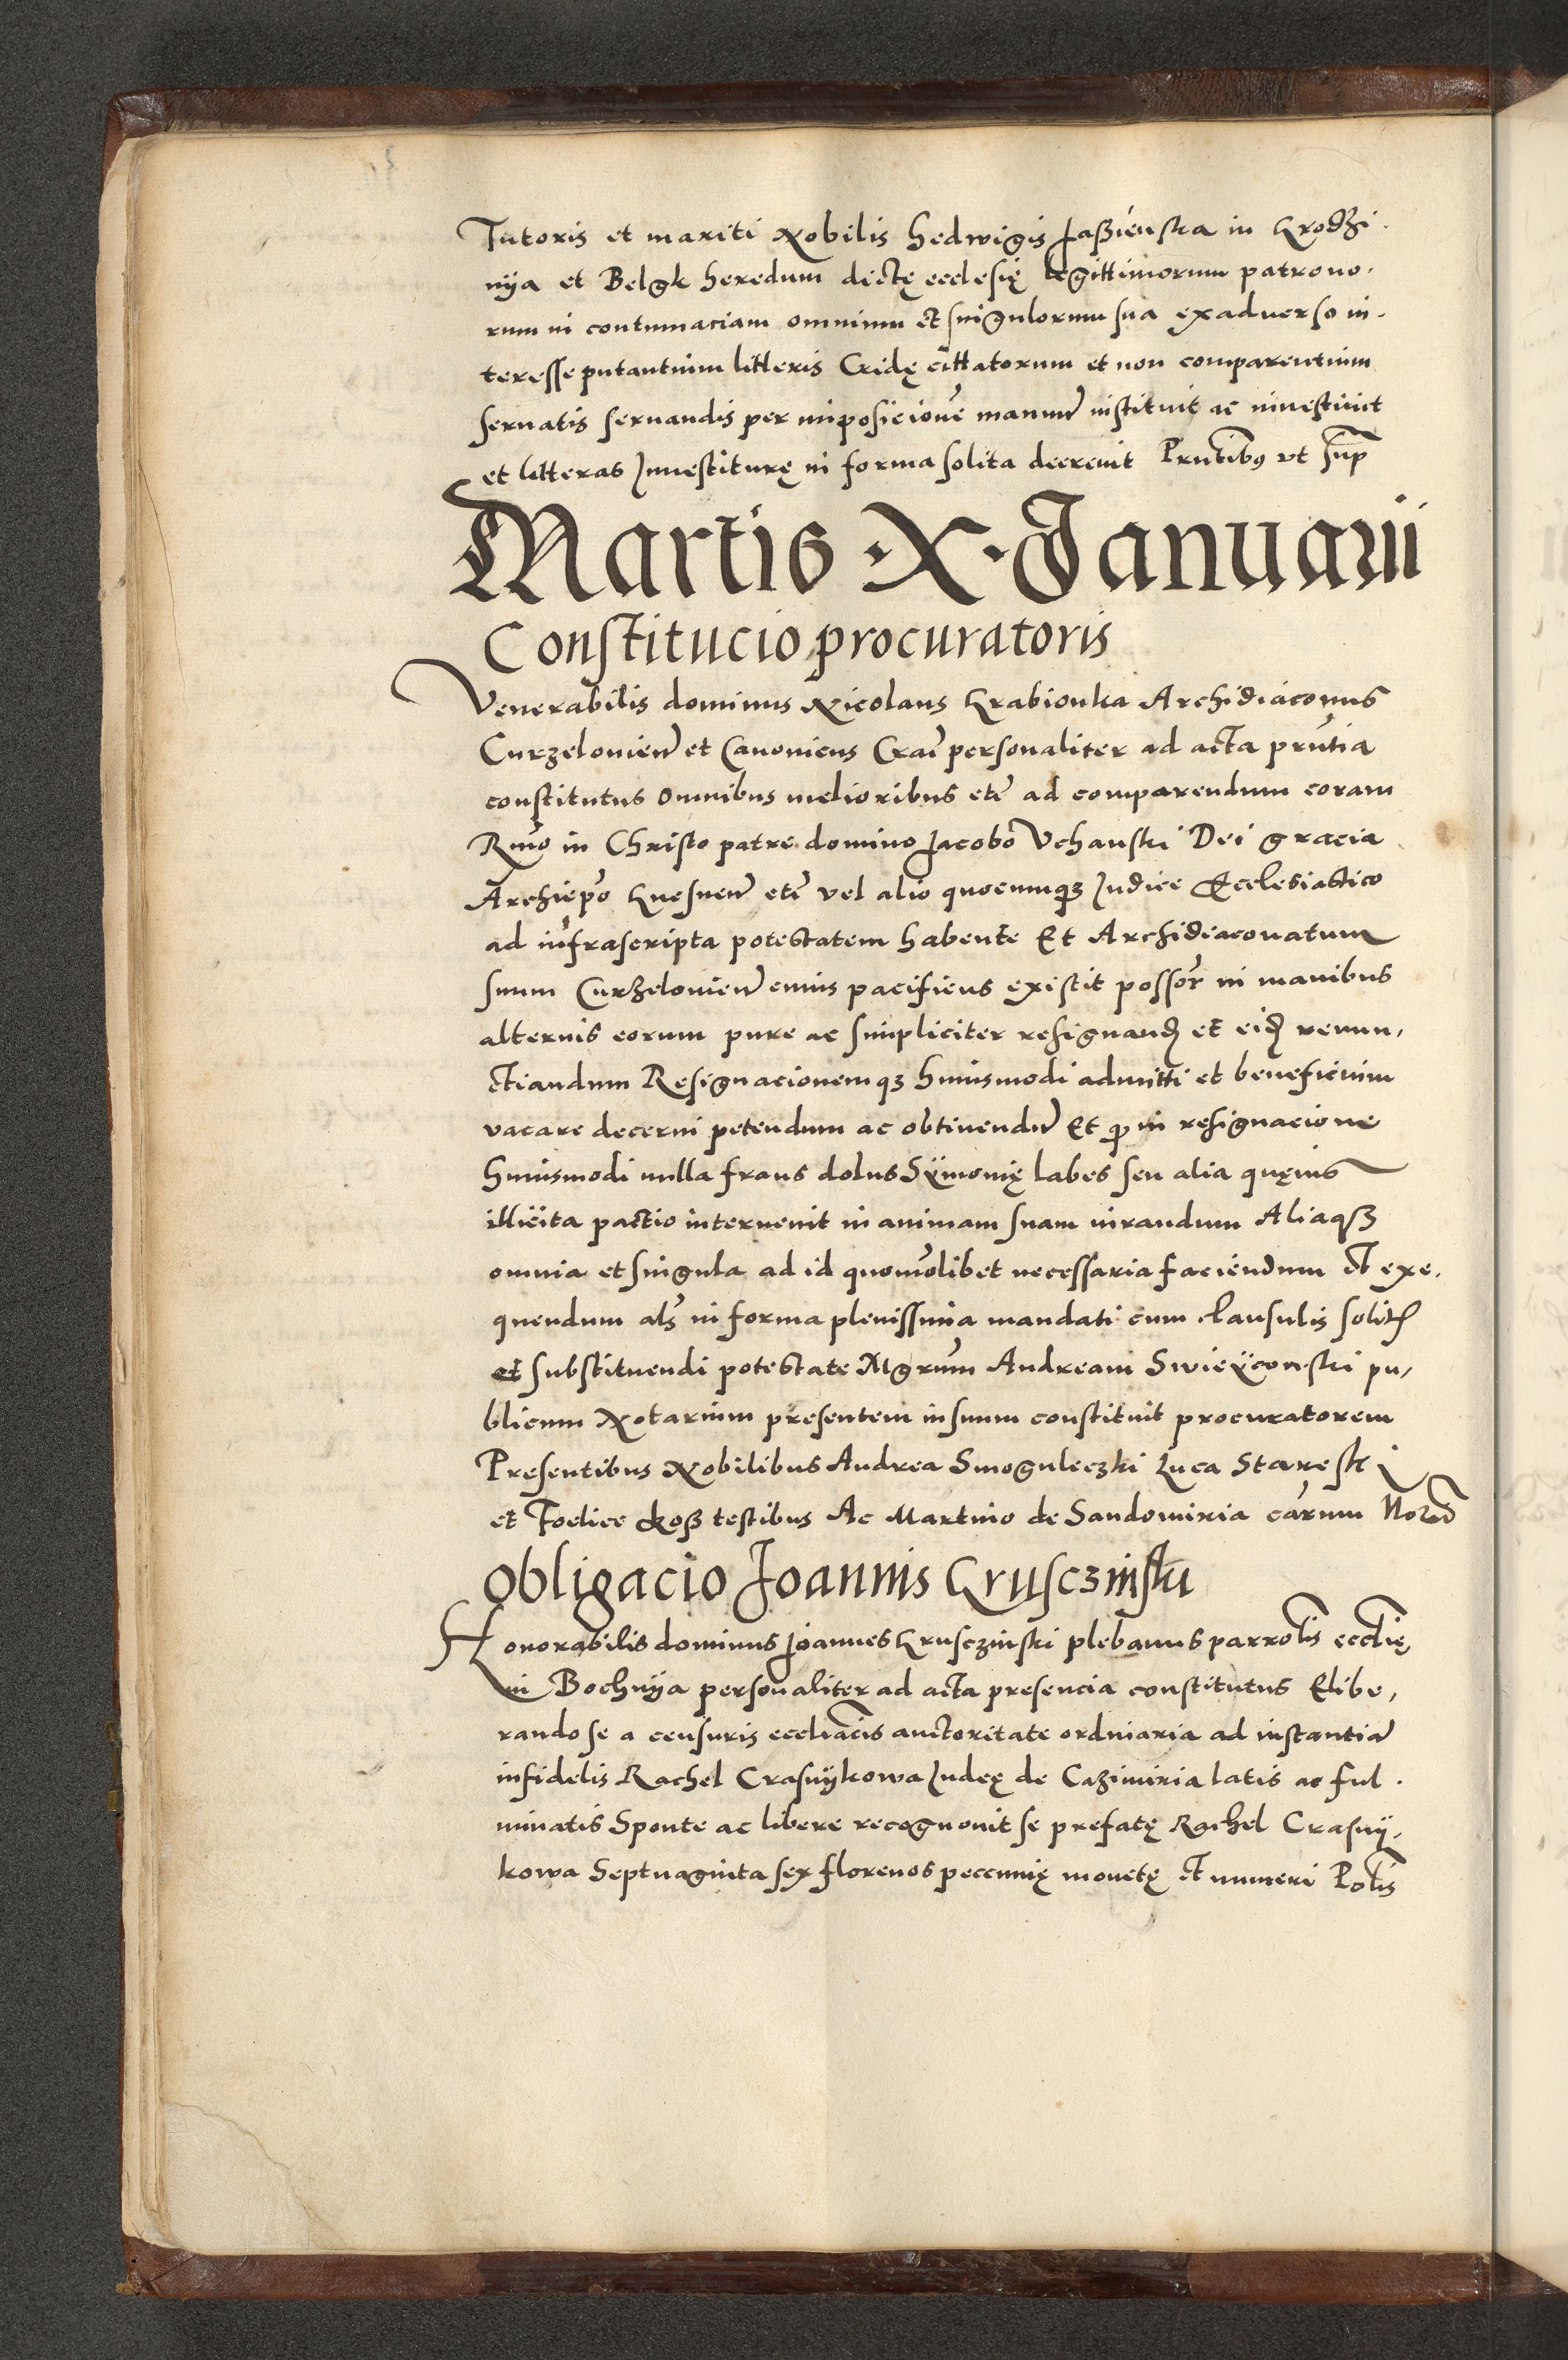 Tutoris et mariti Nobilis Hedwigis Jaßienska in Grodzi
nÿa et Belgk heredum dictę ecclesię legittimorum patrono
rum in contumaciam omnium et singulorum sua exaduerso in
teresse putantium litteris Cridę cittatorum et non comparentium
seruatis seruandis per imposicionẽ manuũ instituit ac inuestiuit
et litteras Inuestiturę in forma solita decreuit Prñtibus vt sup̃
Martis .X. Januarii
Constitucio procuratoris
Venerabilis dominus Nicolaus Grabionka Archidiaconus
Curzelouieñ et Canonicus Crac̃ personaliter ad acta prñtia
constitutus omnibus melioribus etc̃ ad comparendum coram
Rmo in Christo patre domino Jacobo Vchanski Dei gracia
Archiep̃o Gnesneñ etc̃ vel alio quocumqȝ Iudice Ecclesiastico
ad infrascripta potestatem habente Et Archidiaconatum
suum Curzelouieñ cuius pacificus existit possor̃ in manibus
alternis eorum pure ac simpliciter resignand̃ et eid̃ renun
ctiandum Resignacionemqȝ huiusmodi admitti et beneficium
vacare decerni petendum ac obtinendũ Et ꝙ in resignacione
huiusmodi nulla fraus dolus Sÿmonię labes seu alia quęuis
illicita pactio interuenit in animam suam iurandum Aliaqȝ
omnia et singula ad id quomõlibet necessaria faciendum et exe
quendum als̃ in forma plenissima mandati cum clausulis solitis
et substituendi potestate Mgrũm Andream Swieÿconski pu
blicum Notarium presentem in suum constituit procuratorem
Presentibus Nobilibus Andrea Smoguleczki Luca Stareski
et Foelice Koß testibus Ac Martino de Sandomiria cãrum Nor̃io
Obligacio Joannis Gruscziński
Honorabilis dominus Joannes Grusczinski plebanus parrõlis ecctię
in Bochnÿa personaliter ad acta presencia constitutus Elibe
rando se a censuris eccliãcis auctoritate ordinaria ad instantiã
infidelis Rachel Crasnÿkowa Iudeę de Cazimiria latis ac ful
minatis Sponte ac libere recognouit se prefatę Rachel Crasnÿ
kowa Septuaginta sex florenos peccunię monetę et numeri Polis